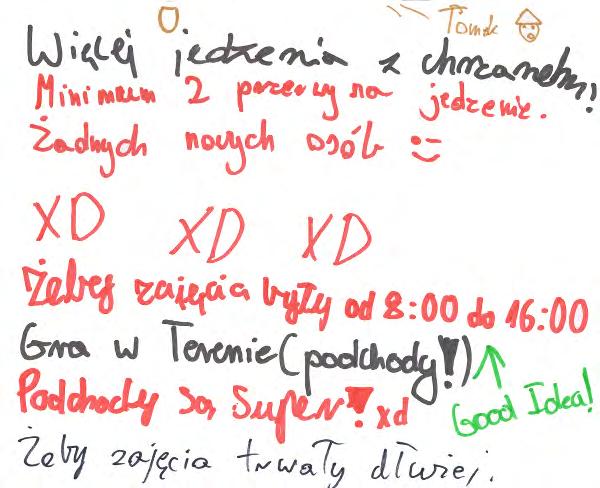 Tomek
Więcej jedzenia z chrzanem!
Minimum 2 przerwy na jedzenie.
Żadnych nowych osób :)
XD XD XD
Żeby zajęcia były od 8:00 do 16:00
Gra w Terenie (podchody!!)
Good Idea!
Podchody są Super! xd
Żeby zajęcia trwały dłużej.